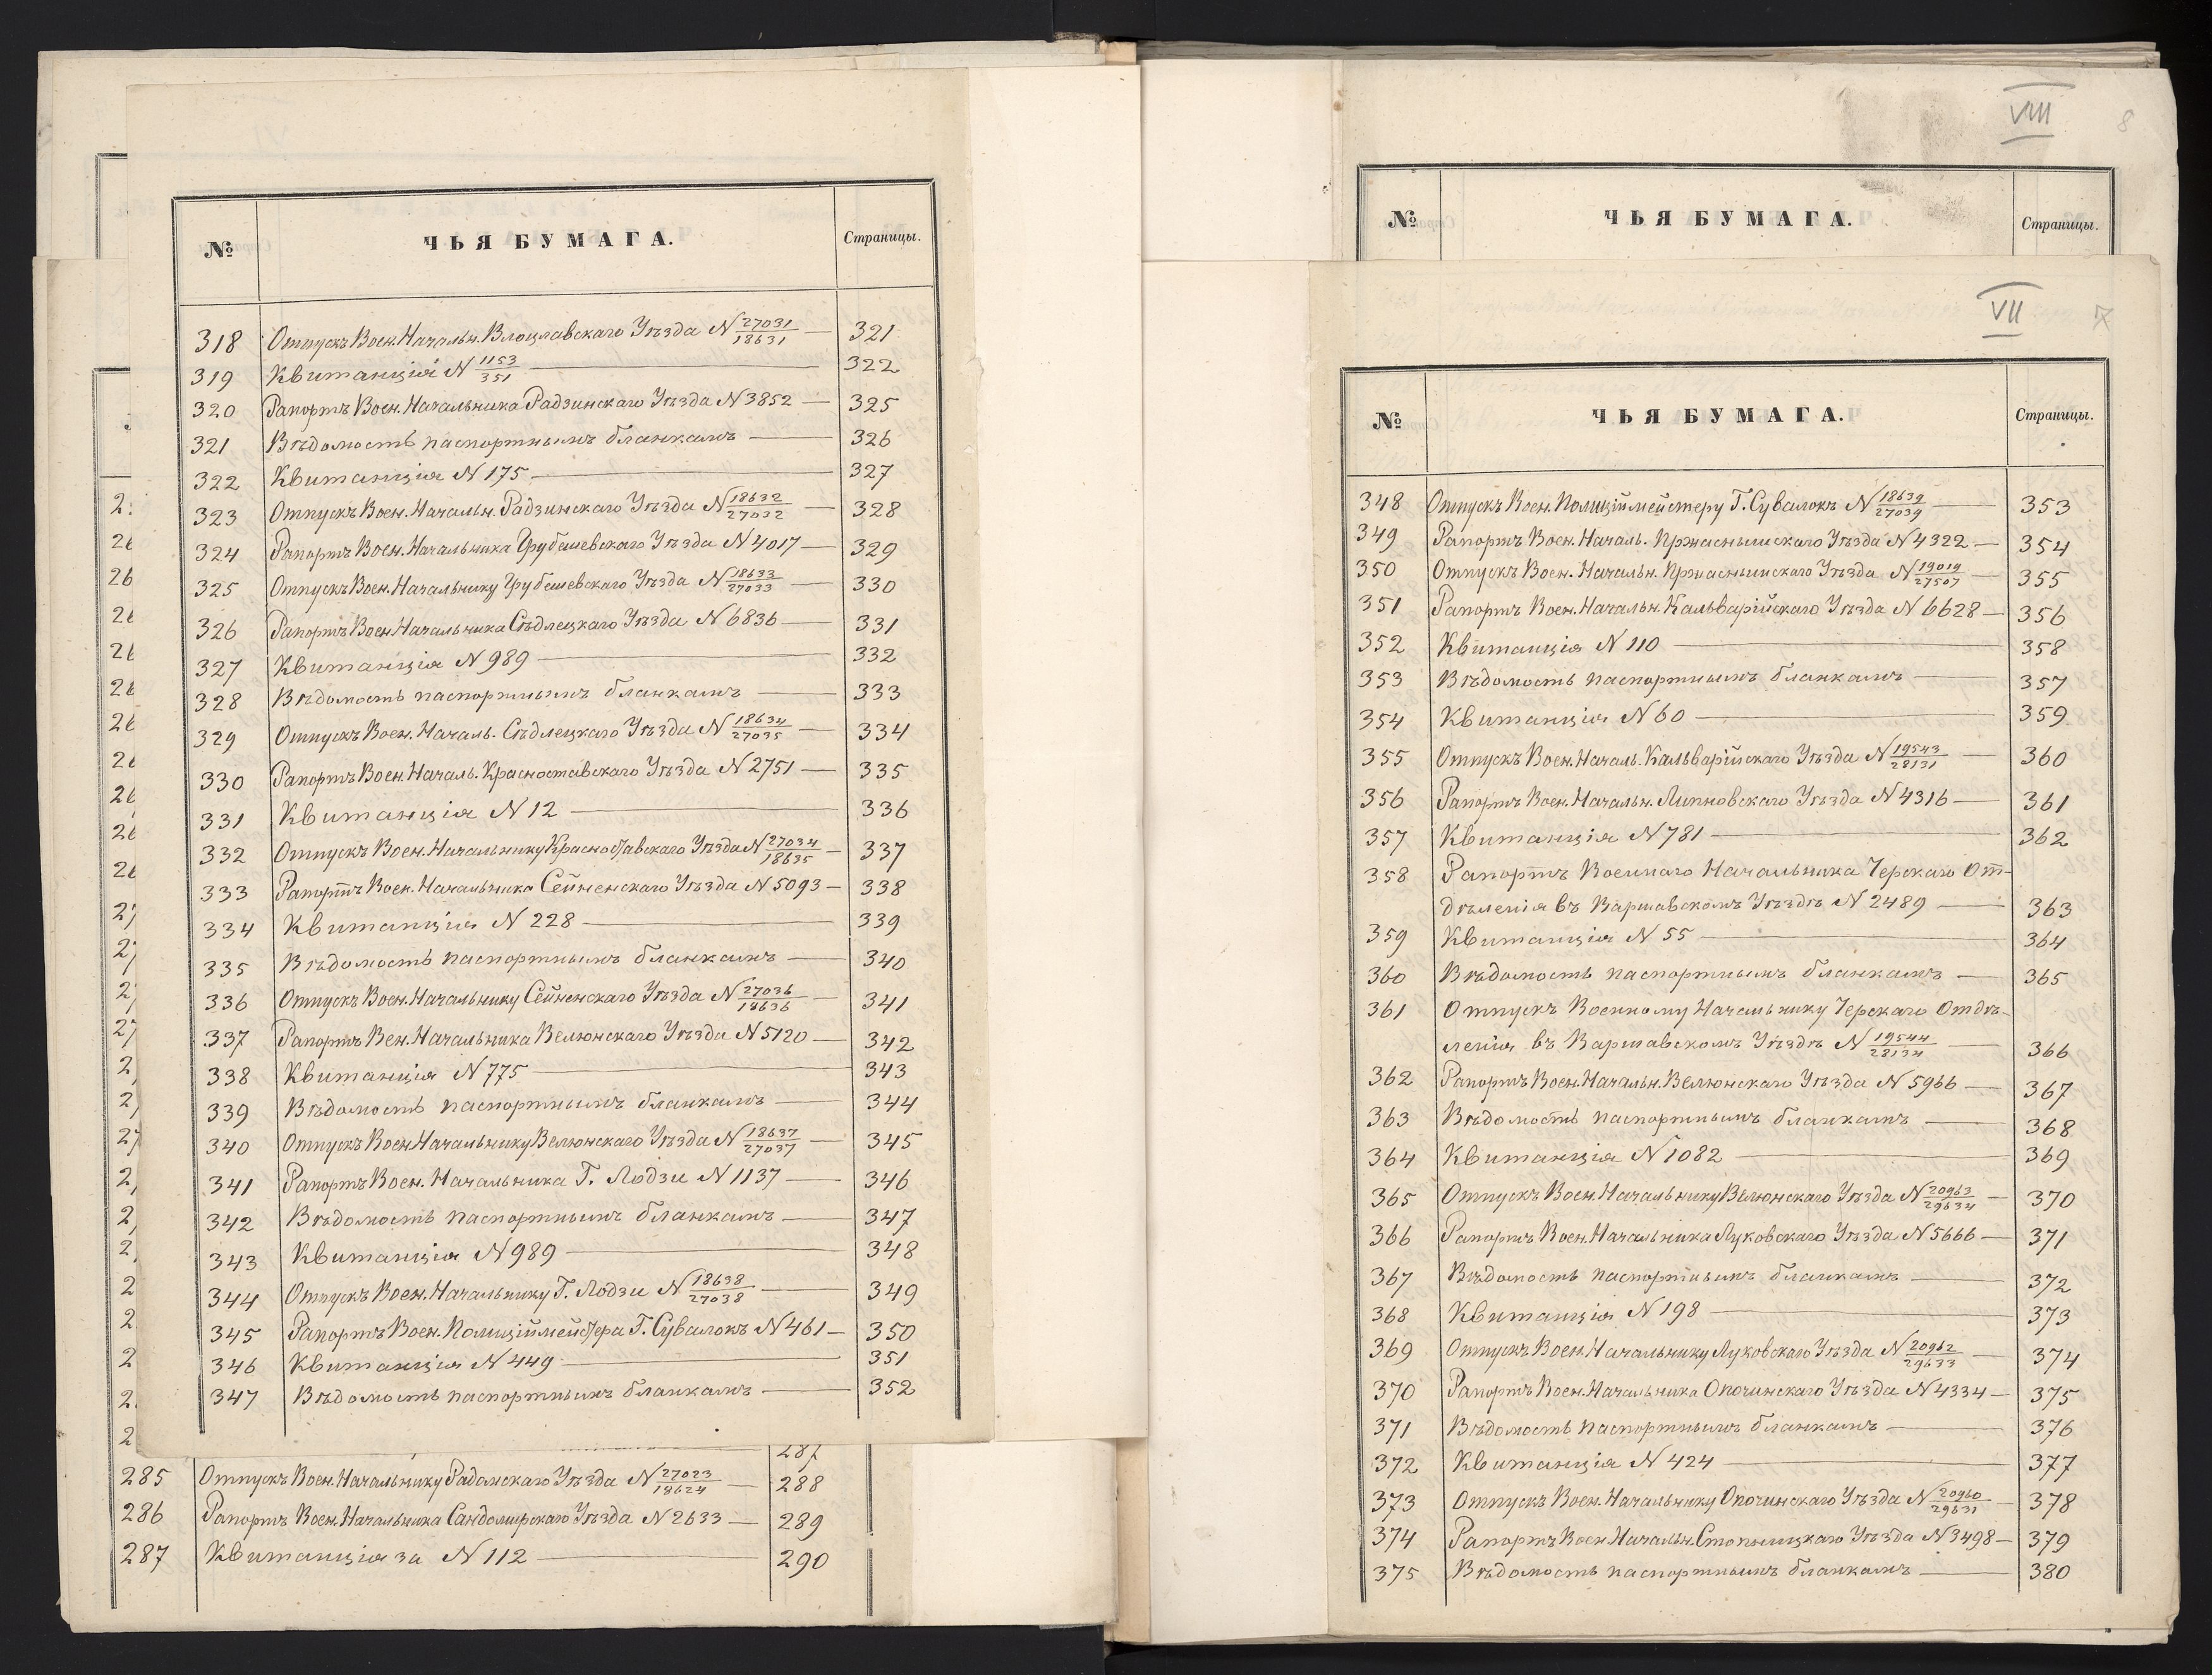 № ЧЬЯ БУМАГА. Страницы.
318 Отпускъ Воен. Начальн. Влоцлавскаго Уѣзда N 27031/18631 — 321
319 Квитанція N 1153/351 — 322
320 Рапортъ Воен. Начальника Радзинскаго Уѣзда N 3852 — 325
321 Вѣдомость паспортнымъ бланкамъ — 326
322 Квитанція N 175 — 327
323 Отпускъ Воен. Начальн. Радзинскаго Уѣзда N 18632/27032 — 328
324 Рапортъ Воен. Начальника Грубешевскаго Уѣзда N 4017 — 329
325 Отпускъ Воен. Начальнику Грубешевскаго Уѣзда N 18633/27033 — 330
326 Рапортъ Воен Начальника Сѣдлецкаго Уѣзда N 6836 — 331
327 Квитанція N 989 — 332
328 Вѣдомость паспортнымъ бланкамъ — 333
329 Отпускъ Воен. Началь. Сѣдлецкаго Уѣзда N 18634/27035 — 334
330 Рапортъ Воен. Началь. Красноставскаго Уѣзда N 2751 — 335
331 Квитанція N 12 — 336
332 Отпускъ Воен. Начальнику Красноставскаго Уѣзда N 27034/18635 — 337
333 Рапортъ Воен. Начальника Сейненскаго Уѣзда N 5093 — 338
334 Квитанція N 228 — 339
335 Вѣдомость паспортнымъ бланкамъ — 340
336 Отпускъ Воен. Начальнику Сейненскаго Уѣзда N 27036/18636 — 341
337 Рапортъ Вен. Начальника Велюнскаго Уѣзда N 5120 — 342
338 Квитанція N 775 — 343
339 Вѣдомость паспортнымъ бланкамъ — 344
340 Отпускъ Воен Начальнику Велюнскаго Уѣзда N 18637/27037 — 345
341 Рапортъ Воен. Начальника Г. Лодзи N 1137 — 346
342 Вѣдомость паспортнымъ бланкамъ — 347
343 Квитанція N 989 — 348
344 Отпускъ Воен. Начальнику Г. Лодзи N 18638/27038 — 349
345 Рапортъ Воен. Полиціймейстера Г. Сувалокъ N 461 — 350
346 Квитанція N 449 — 351
347 Вѣдомость паспортнымъ бланкамъ — 352
287
285 Отпускъ Воен. Начальнику Радомскаго Уѣзда N 27023/18624 — 288
286 Рапортъ Воен. Начальника Сандомирскаго Уѣзда N 2633 — 289
287 Квитанція за N 112 — 290
VIII 8
№ ЧЬЯ БУМАГА. Страницы.
VII 7
№ ЧЬЯ БУМАГА. Страницы.
348 Отпускъ Воен. Полиціймейстеру Г. Сувалокъ N 18639/27039 — 353
349 Рапортъ Воен. Началь. Пржаснышскаго Уѣзда N 4322 — 354
350 Отпускъ Воен. Начальн. Пржаснышскаго Уѣзда N 19019/27507 — 355
351 Рапортъ Воен. Начальн. Кальварійскаго Уѣзда N 6628 — 356
352 Квитанція N 110 — 358
353 Вѣдомость паспортнымъ бланкамъ — 357
354 Квитанція N 60 — 359
355 Отпускъ Воен. Началь. Кальварійскаго Уѣзда N 19543/28131 — 360
356 Рапортъ Воен. Начальн. Липновскаго Уѣзда N 4316 — 361
357 Квитанція N 781 — 362
358 Рапортъ Военнаго Начальника Черскаго От-
дѣленія въ Варшавскомъ Уѣздѣ N 2489 — 363
359 Квитанція N 55 — 364
360 Вѣдомость паспортнымъ бланкамъ — 365
361 Отпускъ Военному Начальнику Черскаго Отдѣ-
ленія въ Варшавскомъ Уѣздѣ N 19544/28134 — 366
362 Рапортъ Воен. Начальн. Велюнскаго Уѣзда N 5966 — 367
363 Вѣдомость паспортнымъ бланкамъ — 368
364 Квитанція N 1082 — 369
365 Отпускъ Воен. Начальнику Велюнскаго Уѣзда N 20963/29634 — 370
366 Рапортъ Воен. Начальника Луковскаго Уѣзда N 5666 — 371
367 Вѣдомость паспортнымъ бланкамъ — 372
368 Квитанція N 198 — 373
369 Отпускъ Воен. Начальнику Луковскаго Уѣзда N 20962/29633 — 374
370 Рапортъ Воен. Начальника Опочинскаго Уѣзда N 4334 — 375
371 Вѣдомость паспортнымъ бланкамъ — 376
372 Квитанція N 424 — 377
373 Отпускъ Воен. Начальнику Опочинскаго Уѣзда N 20960/29631 — 378
374 Рапортъ Воен. Начальн. Стопницкаго Уѣзда N 3498 — 379
375 Вѣдомость паспортнымъ бланкамъ — 380